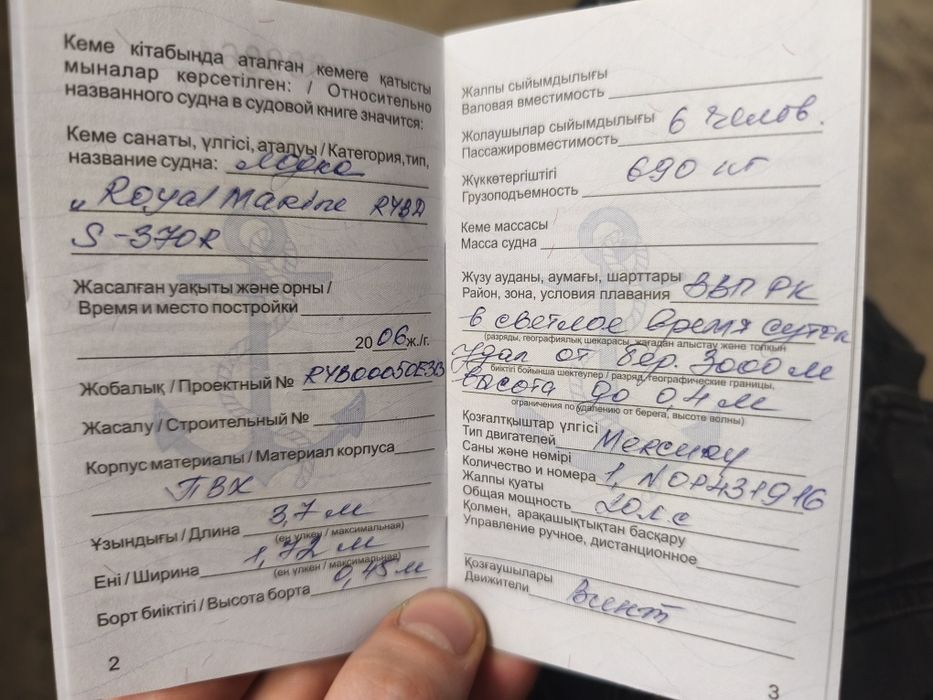 Кеме кітабында аталған кемеге қатысты
мыналар көрсетілген: / Относительно
названного судна в судовой книге значится:
Кеме санаты, үлгісі, аталуы / Категория,тип,
название судна: Лодка
"Royal Marine RYBD
S-370R
Жасалған уақыты және орны /
Время и место постройки
2006ж./г.
Жобалық / Проектный №
Жасалу / Строительный №
Корпус материалы / Материал корпуса
ПВХ
Ұзындығы / Длина 3,7 м
(ең үлкен / максимальная)
Ені / Ширина 1,72 м
(ең үлкен / максимальная)
Борт биіктігі / Высота борта 0,45 м
2
Жалпы сыйымдылығы
Валовая вместимость
Жолаушылар сыйымдылығы
Пассажировместимость 6 челов.
Жүккөтергіштігі
Грузоподъемность 690 кг
Кеме массасы
Масса судна
Жүзу ауданы, аумағы, шарттары
Район, зона, условия плавания ВВП РК
в светлое время суток
(разряды, географиялық шекарасы, жағадан алыстау және толқын
Удал от бер. 3000 м
биіктігі бойынша шектеулер / разряд, географические границы,
высота до 0,4 м
ограничения по удалению от берега, высоте волны)
Қозғалтқыштар үлгісі
Тип двигателей Меркури
Саны және нөмірі
Количество и номера 1, N OP431916
Жалпы қуаты
Общая мощность 20 л.с
Қолмен, арақашықтықтан басқару
Управление ручное, дистанционное
Қозғаушылары
Движители Винт
3